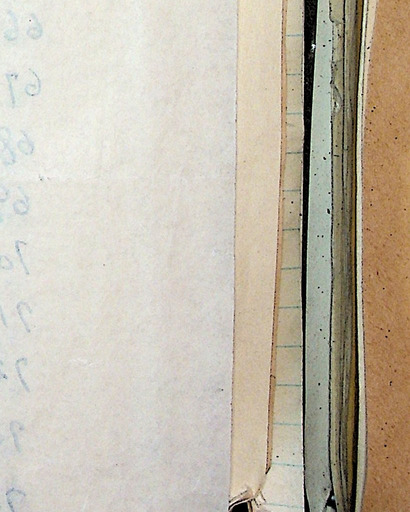 66
67
68
69
70
71
72